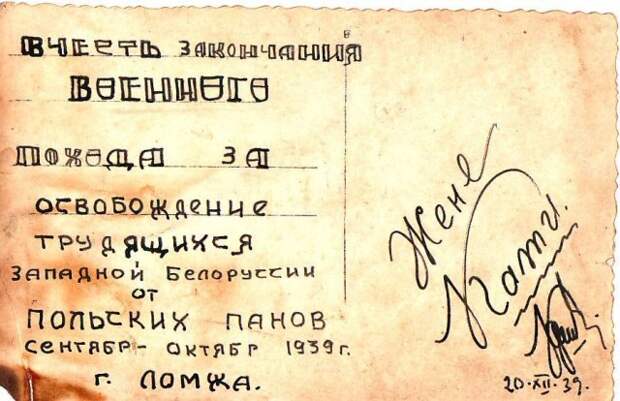 В ЧЕСТЬ ЗАКОНЧАНИЯ
ВОЕННОГО
ПОХОДА ЗА
ОСВОБОЖДЕНИЕ
ТРУДЯЩИХСЯ
ЗАПАДНОЙ БЕЛОРУССИИ
ОТ
ПОЛЬСКИХ ПАНОВ
СЕНТЯБР- ОКТЯБР 1939 г.
г. ЛОМЖА.
Жене
Кати.
20-XII-39.